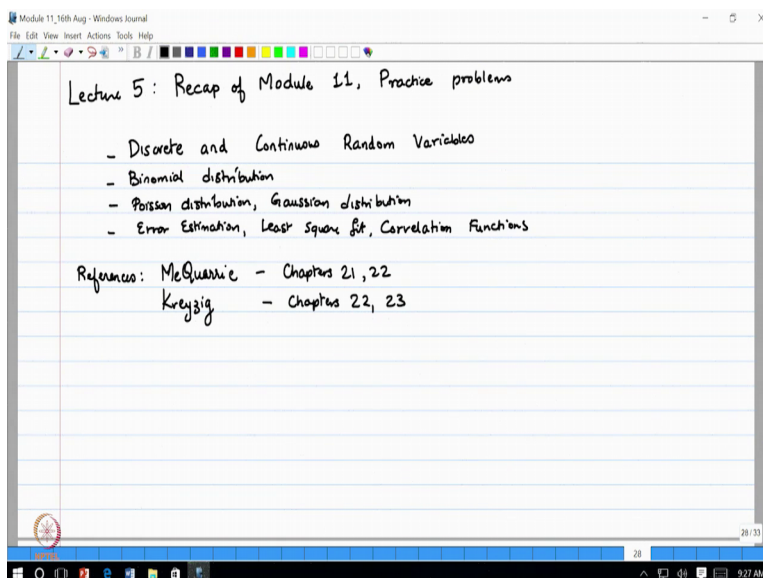 Module 11_16th Aug - Windows Journal
File Edit View Insert Actions Tools Help
Lecture 5 : Recap of Module 11, Practice problems
- Discrete and Continuous Random Variables
- Binomial distribution
- Poisson distribution, Gaussian distribution
- Error Estimation, Least Square fit, Correlation Functions
References: McQuarrie - Chapters 21, 22
Kreyzig - Chapters 22, 23
NPTEL
28/33
28
9:27 AM